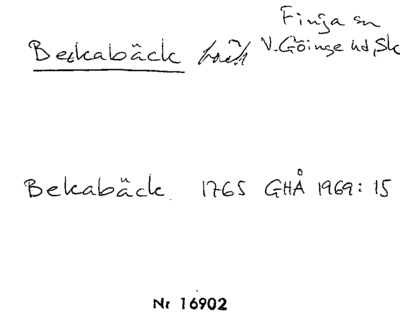 Finja sn
Beckabäck bäck V.Göinge hd, Sk
Bekabäck 1765 GHÅ 1969: 15
Nr 16902